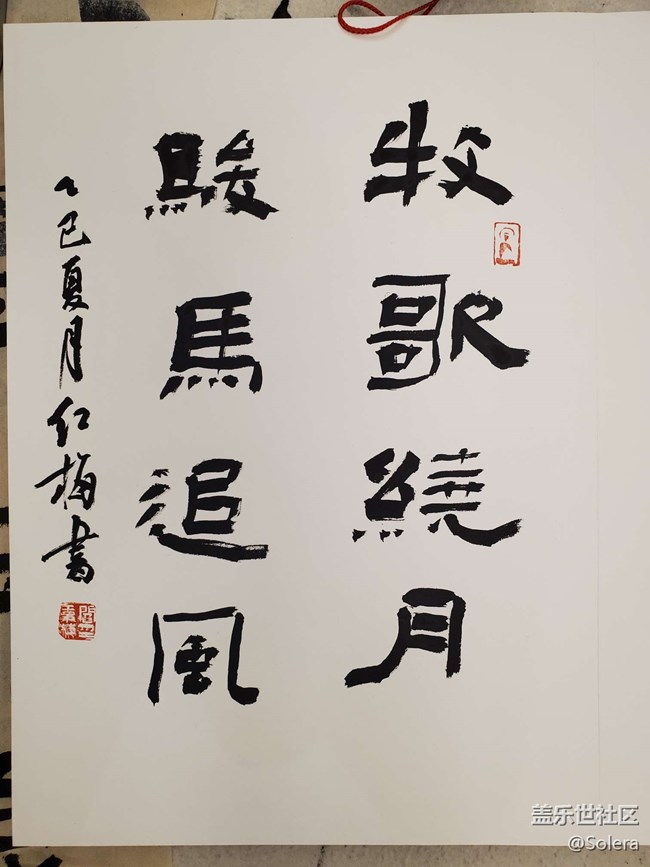 牧歌繞月
駿馬追風
乙巳夏月红梅書
盖乐世社区
@Solera